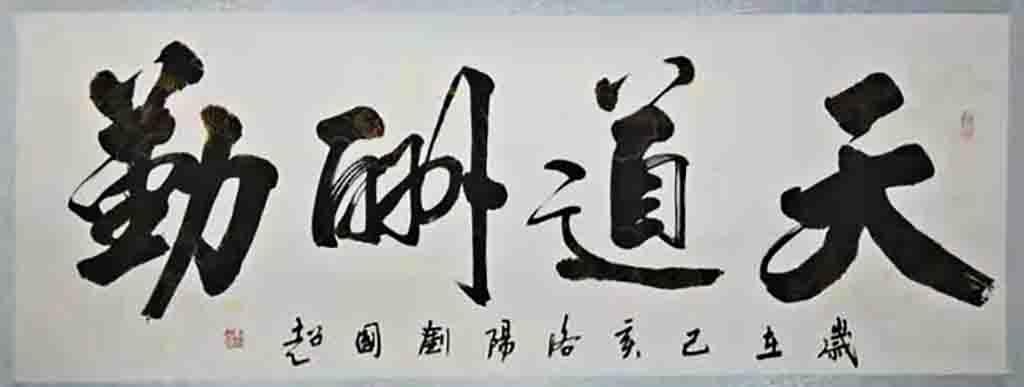 天道酬勤
歲在己亥洛陽劉國超